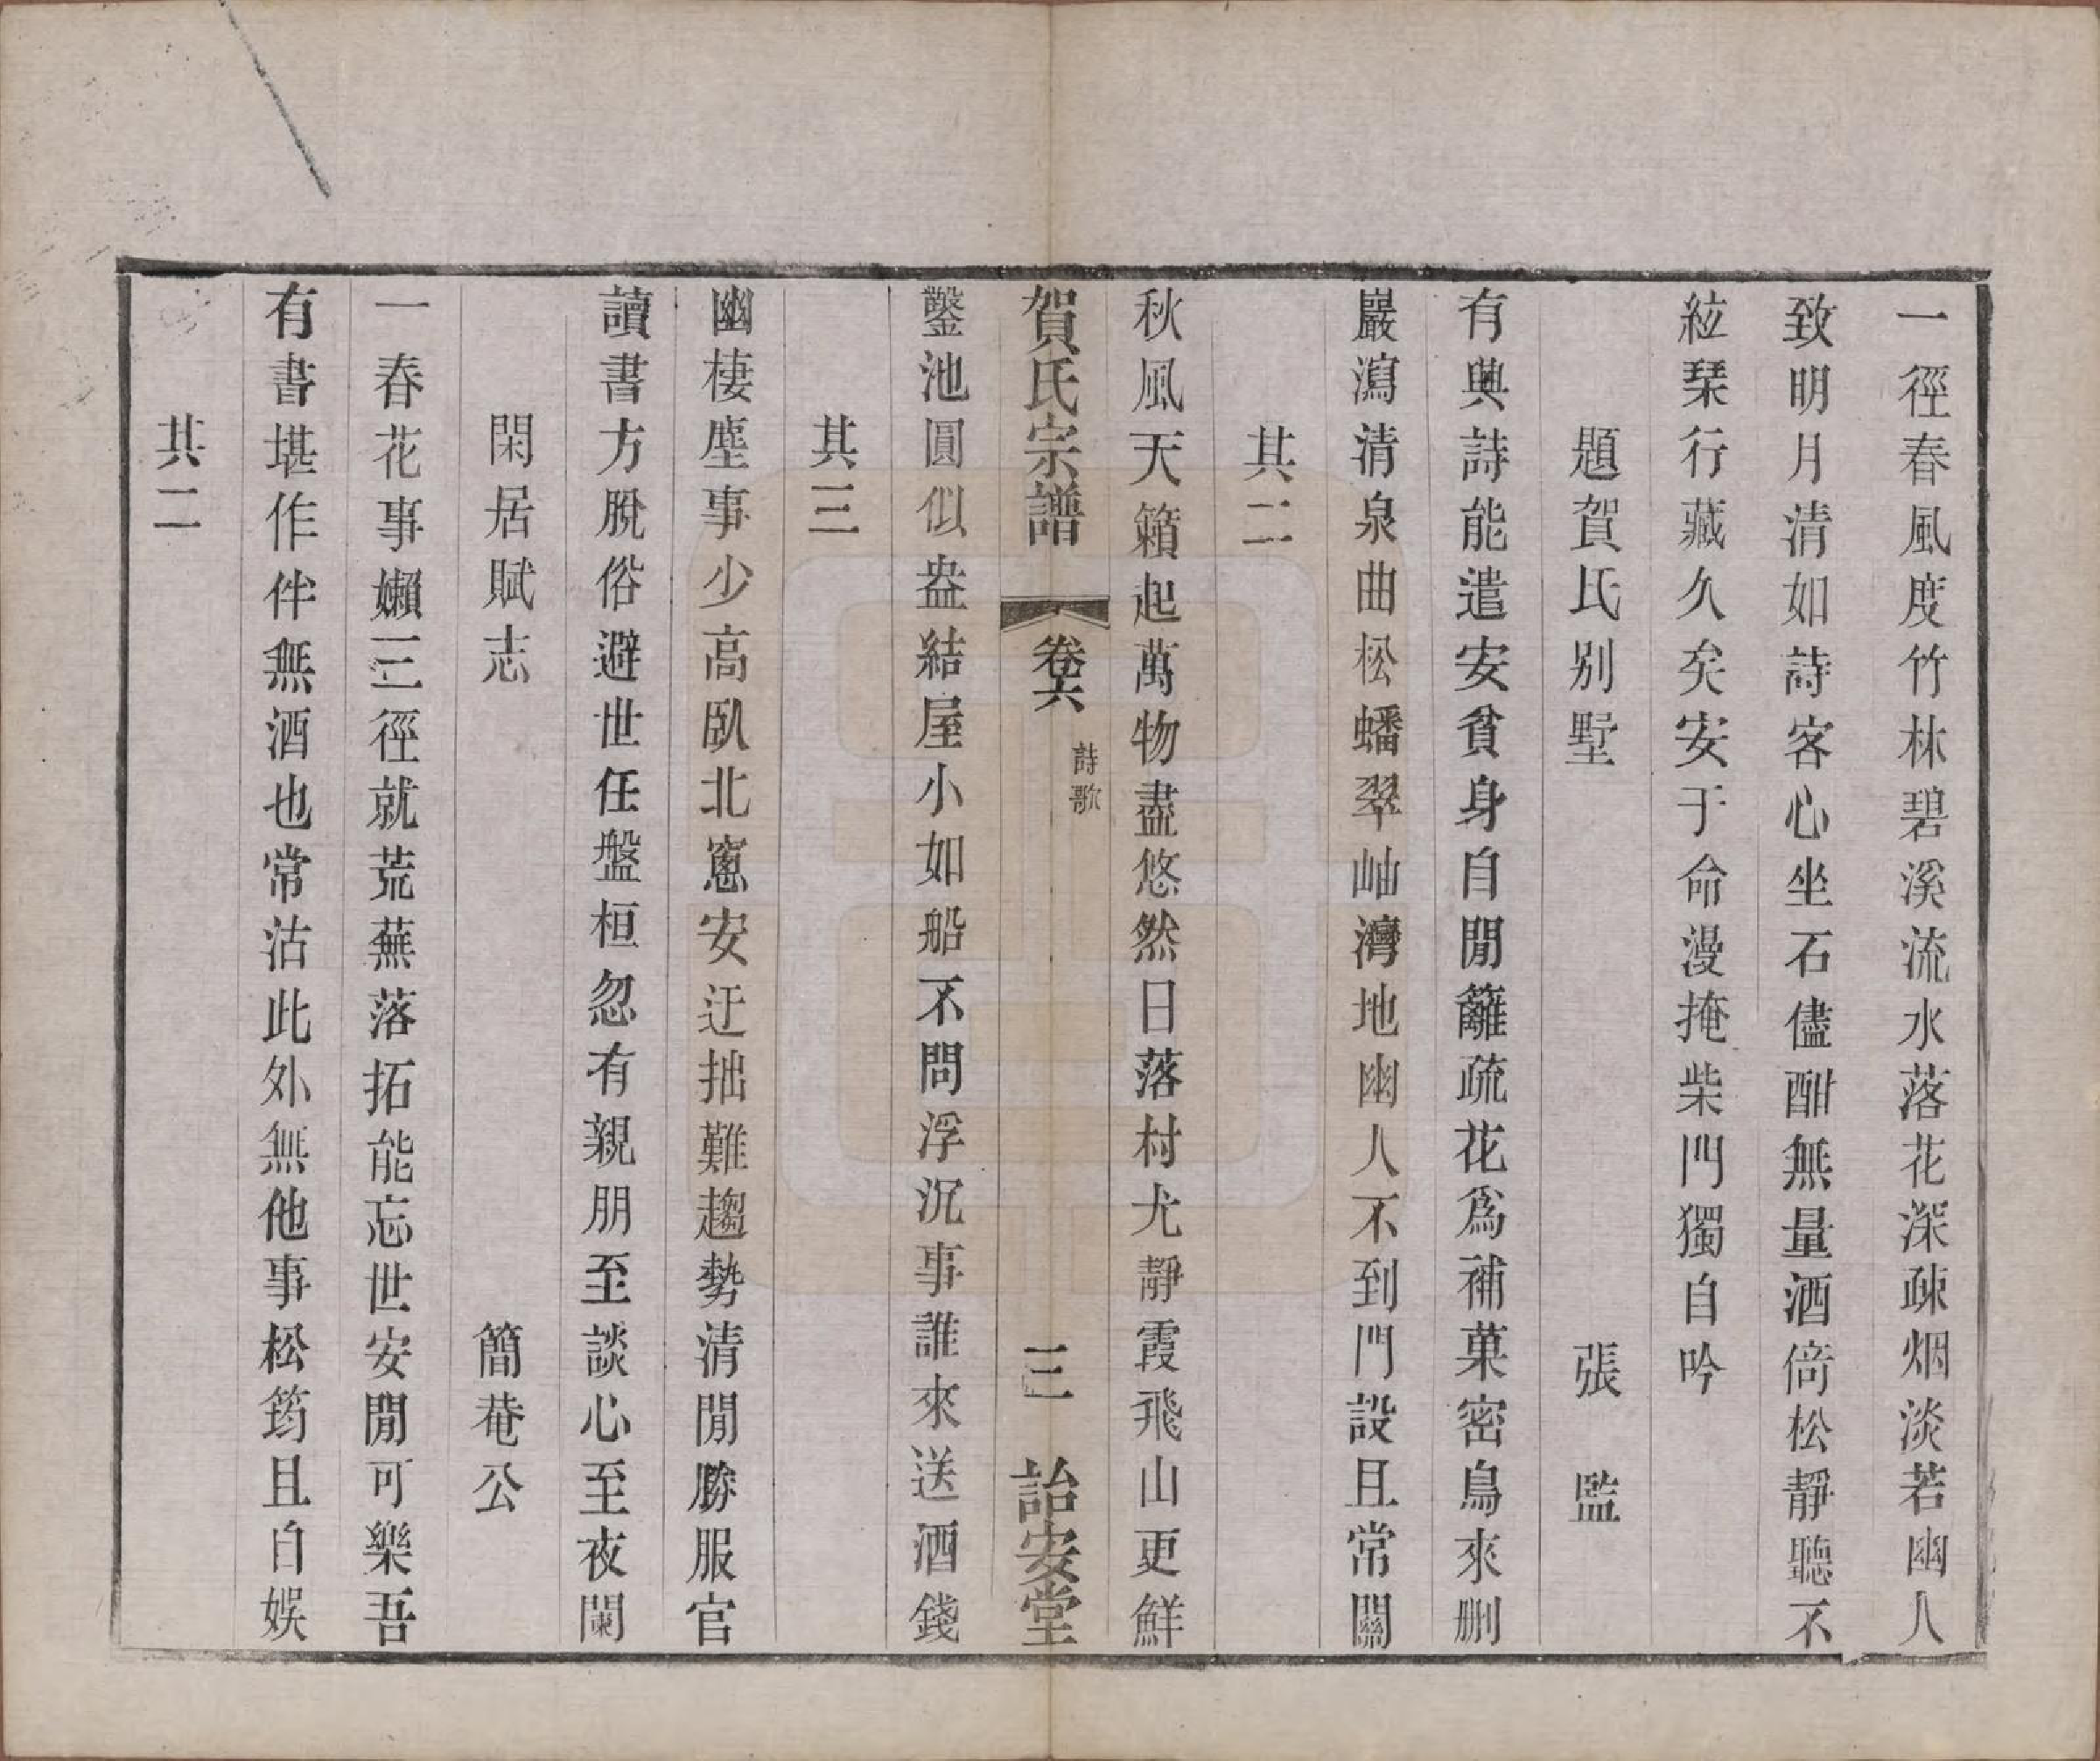 一徑春風度竹林碧溪流水落花深疎烟淡若幽人
致明月清如詩客心坐石儘酣無量酒倚松靜聽不
絃琹行藏久矣安于命漫掩柴門獨自吟
題賀氏別墅　張監
有興詩能遣安貧身自閒籬疏花爲補菓密鳥來刪
巖瀉清泉曲松蟠翠岫灣地幽人不到門設且常關
其二
秋風天籟起萬物盡悠然日落村尤靜霞飛山更鮮
賀氏宗譜　卷六　詩歌　三　詒安堂
鑿池圓似盎結屋小如船不問浮沉事誰來送酒錢
其三
幽棲塵事少高臥北窻安迂拙難趨勢清閒勝服官
讀書方脫俗避世任盤桓忽有親朋至談心至夜闌
閑居賦志　簡菴公
一春花事嬾三徑就荒蕪落拓能忘世安閒可樂吾
有書堪作伴無酒也常沽此外無他事松筠且自娛
其二